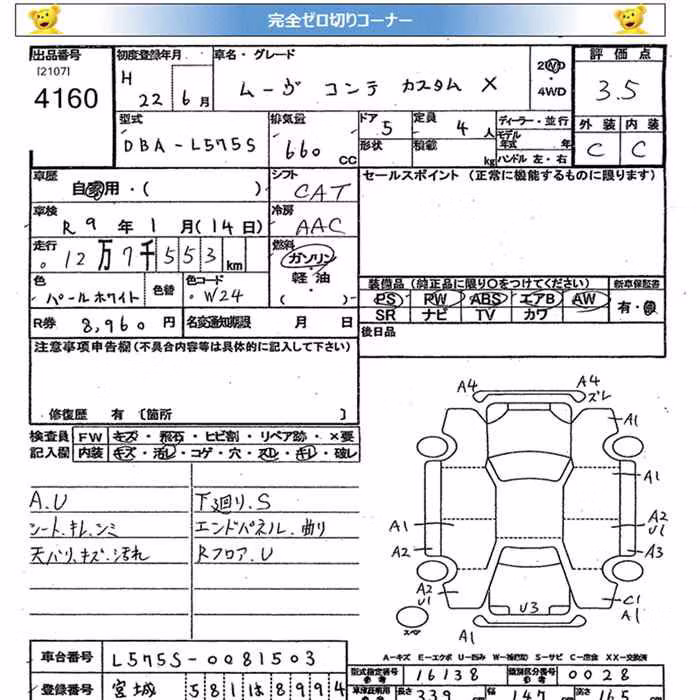 完全ゼロ切りコーナー
出品番号
[2107]
4160
初度登録年月
H 22年 6月
車名・グレード
ムーヴ コンテ カスタム X
2WD
・4WD
評価点
3.5
外装 内装
C C
型式
DBA-L575S
排気量
660 cc
ドア 5
定員 4人
形状
積載 kg
ディーラー・並行
モデル年式 年
ハンドル 左・右
車歴
自家用・( )
シフト
CAT
セールスポイント (正常に機能するものに限ります)
車検
R 9年 1月 (14日)
冷房
AAC
走行
12万7千553km
燃料
ガソリン
・軽油
( )
色
パールホワイト
色替
色コード
W24
装備品 (純正品に限り○をつけてください)
新車保証書
PS PW ABS エアB AW
有・無
SR ナビ TV カワ
R券 8,960円
名変通知期限 月 日
後日品
注意事項申告欄(不具合内容等は具体的に記入して下さい)
修復歴 有 [箇所 ]
検査員
記入欄
FW キズ・飛石・ヒビ割・リペア跡・×要
内装 キズ・汚レ・コゲ・穴・スレ・キレ・破レ
A.U
シート.キレ.シミ
天バリ.キズ.汚れ
下廻り.S
エンドパネル.曲り
Rフロア.U
A4
A4
ズレ
A1
A1
A1
A2
A2
U1
A3
A2
U1
U3
C1
A1
A1
スペア
A-キズ E-エクボ U-凹み W-補修跡 S-サビ C-腐食 XX-交換済
車台番号
L575S-0081503
型式指定番号
参考
16138
類別区分番号
参考
0028
登録番号
宮城 581 は 8994
長さ 339
幅 147
高さ 165